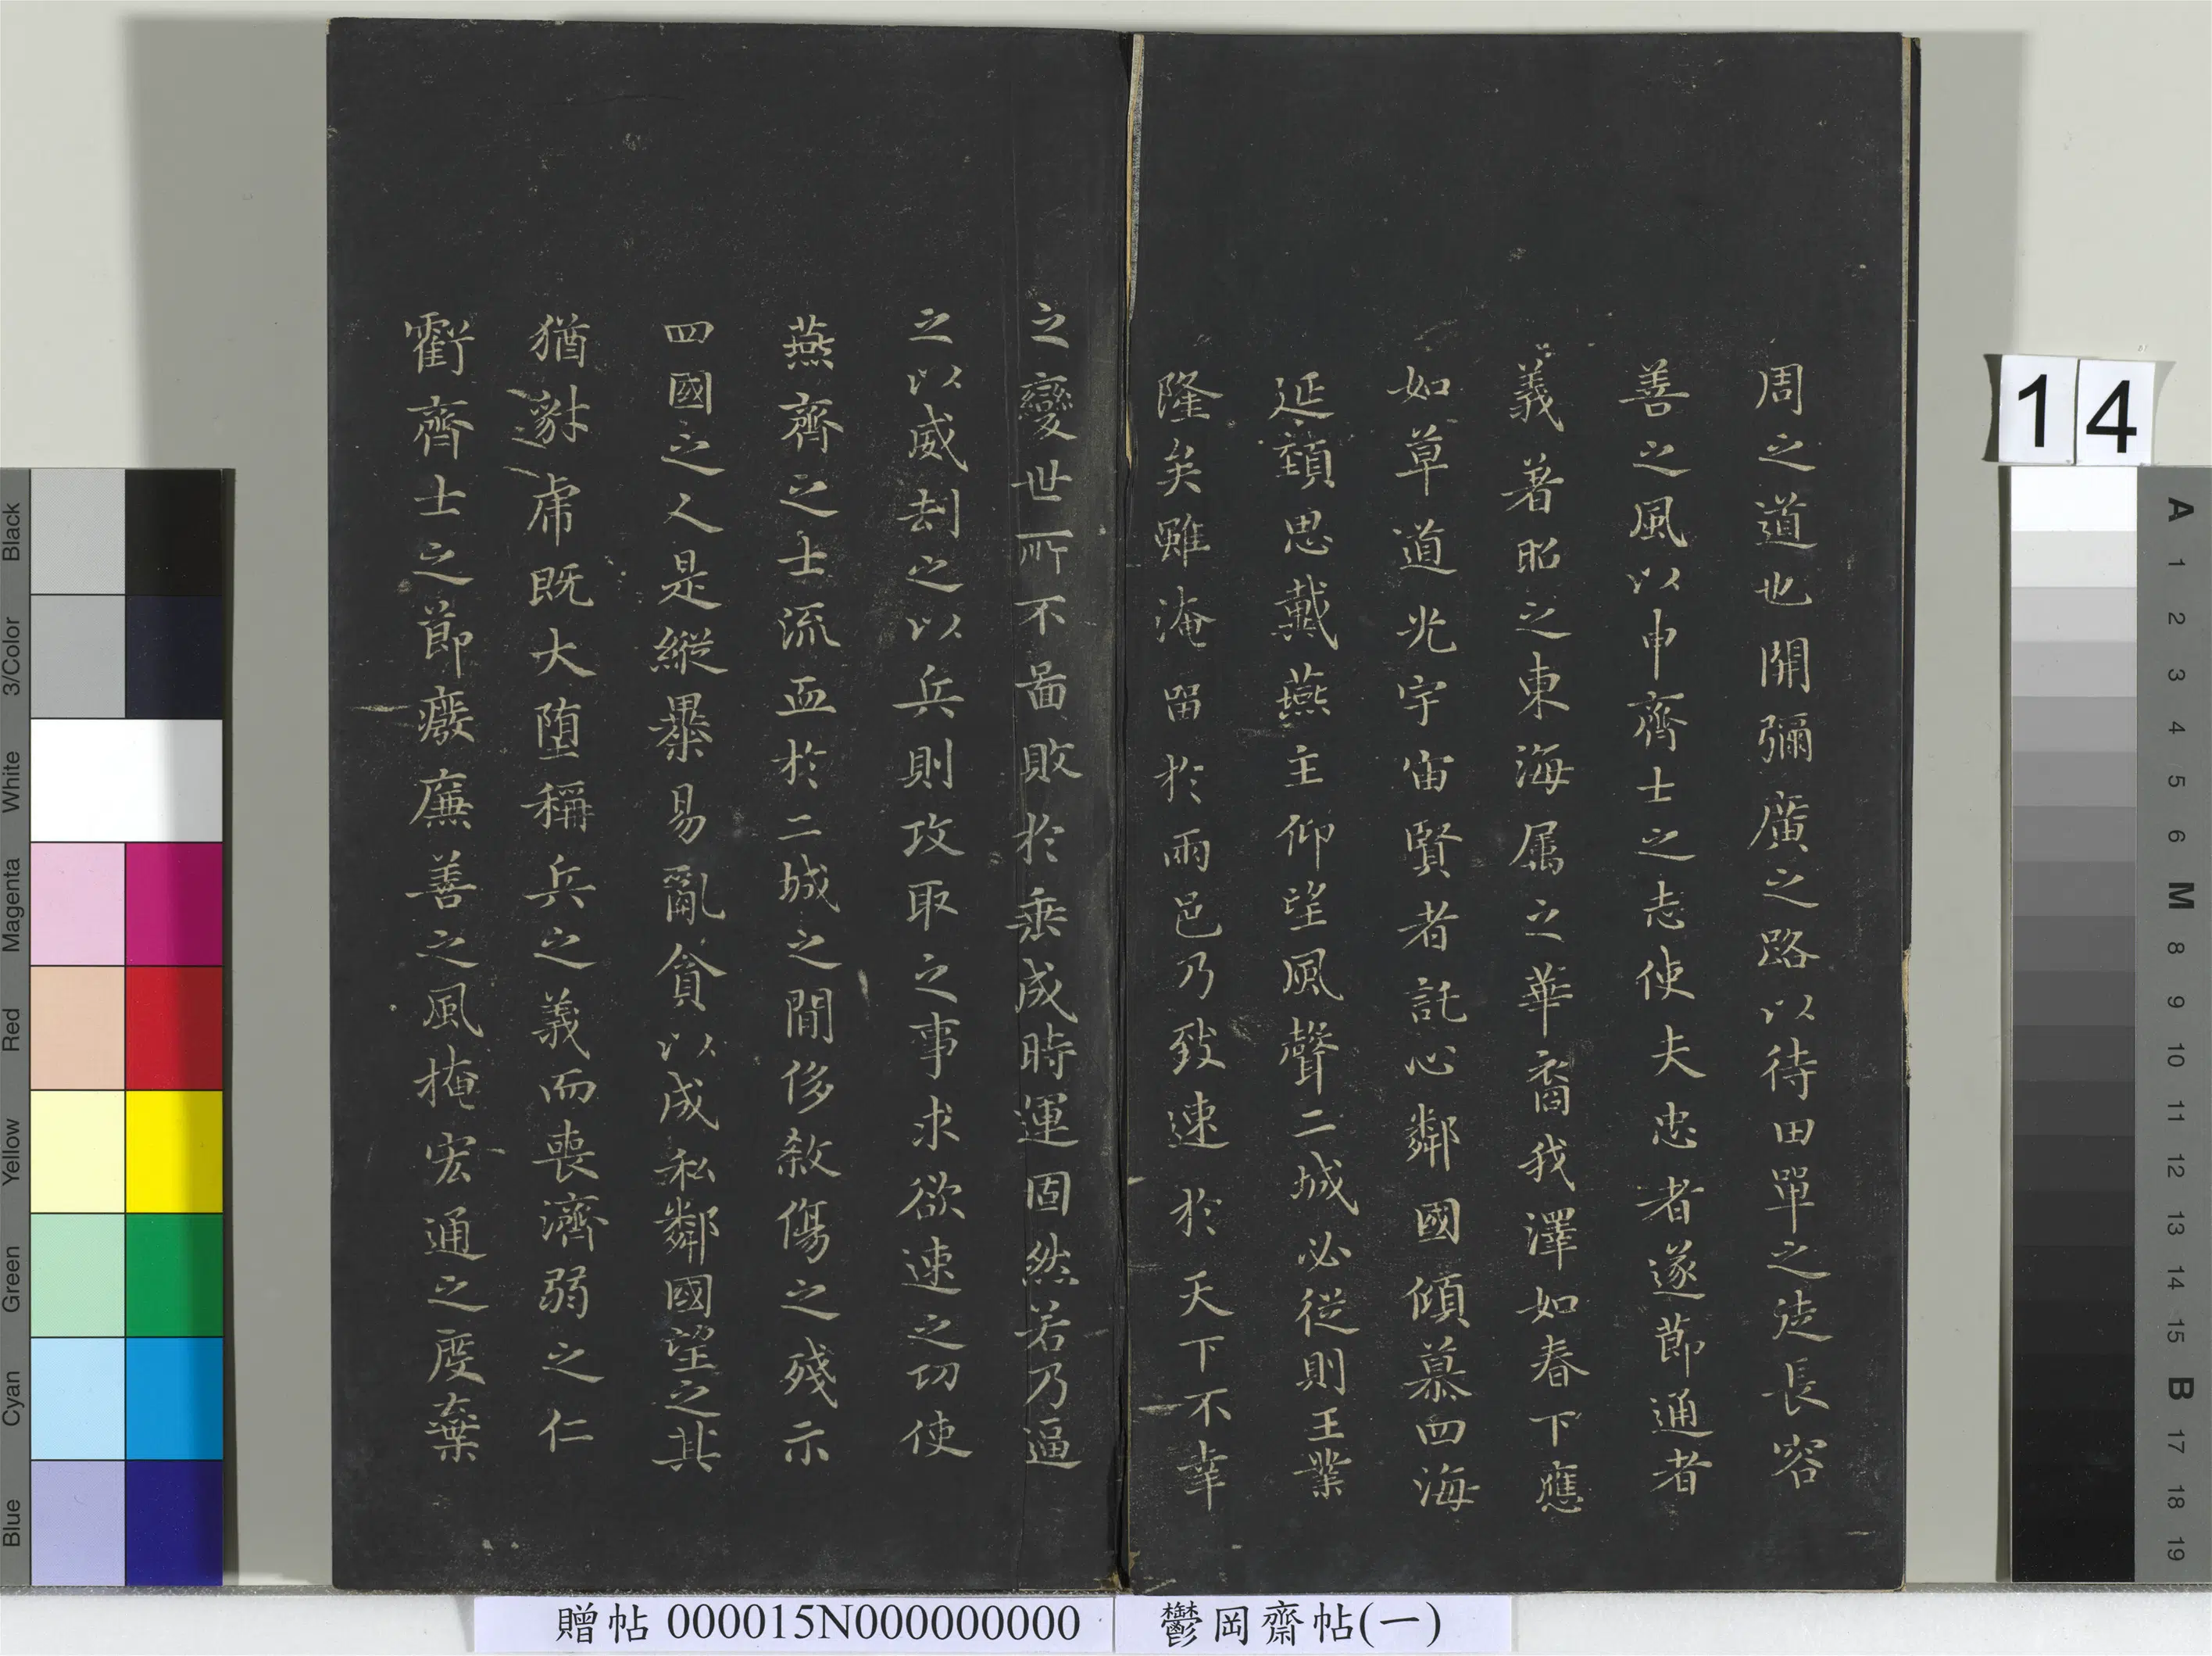 周之道也開彌廣之路以待田單之徒長容
善之風以申齊士之志使夫忠者遂節通者
義著昭之東海属之華裔我澤如春下應
如草道光宇宙賢者託心鄰國傾慕四海
延頸思戴燕主仰望風聲二城必從則王業
隆矣雖淹留於兩邑乃致速於天下不幸
之變世所不啚敗於垂成時運固然若乃逼
之以威刧之以兵則攻取之事求欲速之功使
燕齊之士流血於二城之間侈敘傷之殘示
四國之人是縱暴易亂貪以成私鄰國望之其
猶豺虎既大堕稱兵之義而喪濟弱之仁
虧齊士之節癈廉善之風掩宏通之度棄
14
Black
3/Color
White
Magenta
Red
Yellow
Green
Cyan
Blue
A
1
2
3
4
5
6
M
8
9
10
11
12
13
14
15
B
17
18
19
贈帖 000015N000000000
鬱岡齋帖(一)